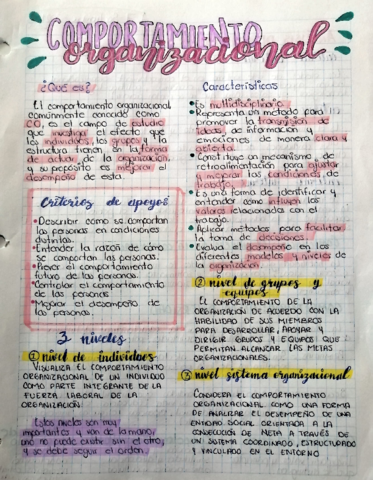 COMPORTAMIENTO
organizacional
¿QUÉ es?
El comportamiento organizacional
comúnmente conocido como
CO, es el campo de estudio
que investiga el efecto que
los individuos, los grupos y la
estructura tienen en la forma
de actuar de la organización,
y su propósito es mejorar el
desempeño de esta.
Criterios de apoyos
• Describir como se comportan
las personas en condiciones
distintas.
• Entender la razón de cómo
se comportan las personas.
• Prever el comportamiento
futuro de las personas.
• Controlar el comportamiento
de las personas
• Mejorar el desempeño de
las personas.
3 niveles
① nivel de individuos
VISUALIZA EL COMPORTAMIENTO
ORGANIZACIONAL DE UN INDIVIDUO
COMO PARTE INTEGRANTE DE LA
FUERZA LABORAL DE LA
ORGANIZACIÓN.
Estos niveles son muy
importantes y van de la mano,
uno no puede existir sin el otro,
y se debe seguir el orden.
Características
• Es multidisciplinario.
• Representa un método para
promover la transmisión de
ideas, de información y
emociones de manera clara y
abierta.
• Constituye un mecanismo de
retroalimentación para ajustar
y mejorar las condiciones de
trabajo.
• Es una forma de identificar y
entender como influyen los
valores relacionados con el
trabajo.
• Aplicar métodos para facilitar
la toma de decisiones.
• Evalua el desempeño en los
diferentes modelos y niveles de
la organización.
② nivel de grupos y
equipos
EL COMPORTAMIENTO DE LA
ORGANIZACIÓN DE ACUERDO CON LA
HABILIDAD DE SUS MIEMBROS
PARA DESARROLLAR, APOYAR Y
DIRIGIR GRUPOS Y EQUIPOS QUE
PERMITAN ALCANZAR LAS METAS
ORGANIZACIONALES.
③ nivel sistema organizacional
CONSIDERA EL COMPORTAMIENTO
ORGANIZACIONAL COMO UNA FORMA
DE ANALIZAR EL DESEMPEÑO DE UNA
ENTIDAD SOCIAL ORIENTADA A LA
CONSECUCIÓN DE META A TRAVÉS DE
UN SISTEMA COORDINADO, ESTRUCTURADO
Y VINCULADO EN EL ENTORNO